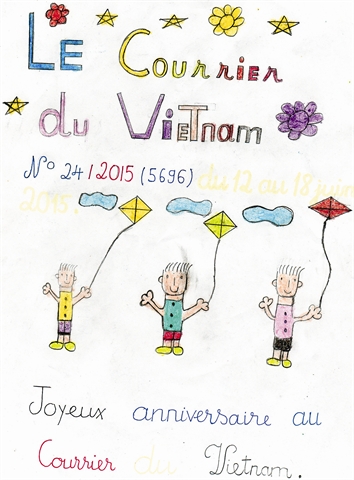 Le Courrier
du Vietnam
N° 24/2015 (5696) du 12 au 18 juin
2015.
Joyeux anniversaire au
Courrier du Vietnam.